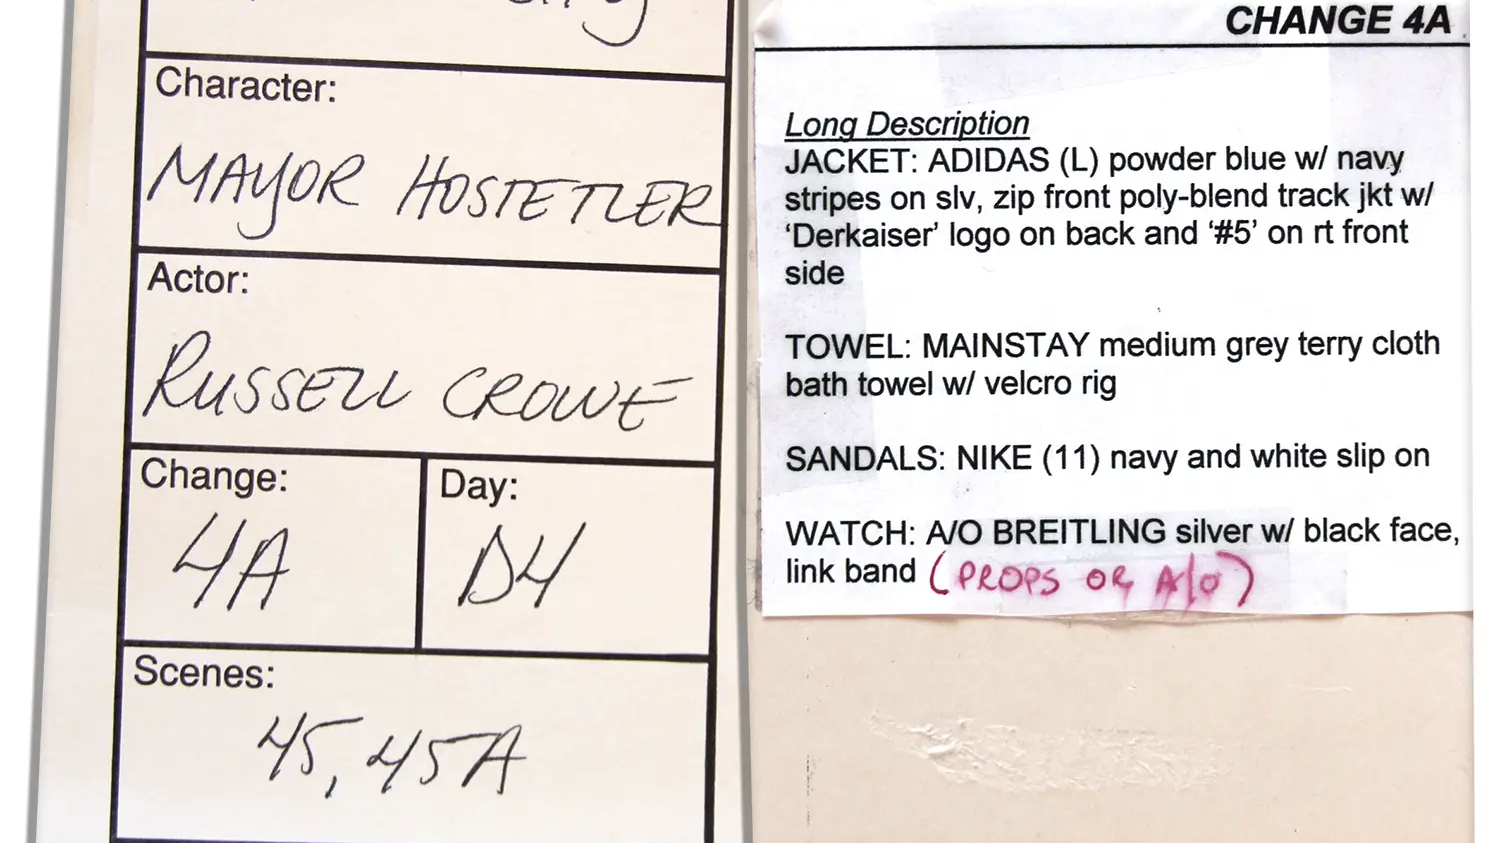 Character:
MAYOR HOSTETLER
Actor:
RUSSELL CROWE
Change:
4A
Day:
D4
Scenes:
45, 45A
CHANGE 4A
Long Description
JACKET: ADIDAS (L) powder blue w/ navy
stripes on slv, zip front poly-blend track jkt w/
‘Derkaiser’ logo on back and ‘#5’ on rt front
side
TOWEL: MAINSTAY medium grey terry cloth
bath towel w/ velcro rig
SANDALS: NIKE (11) navy and white slip on
WATCH: A/O BREITLING silver w/ black face,
link band (PROPS OR A/O)